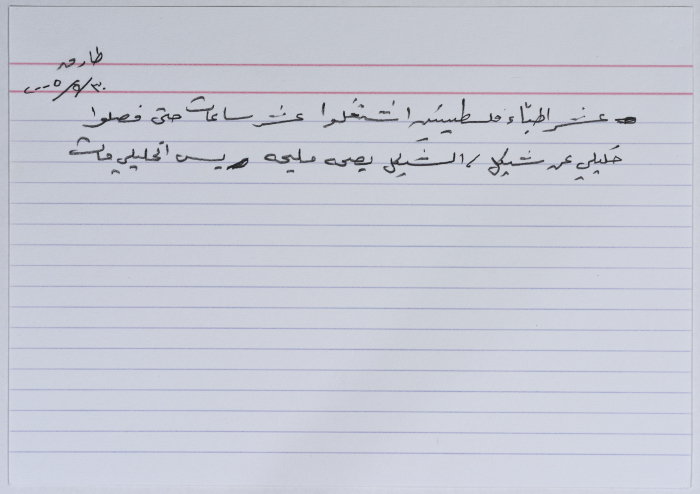 طارق
٢٠٠٥/٥/٣٠
- عشر اطبّاء فلسطينين اشتغلوا عشر ساعات حتى فصلوا
خليلي عن شيكل، الشيكل بصحه مليحه وبس الخليلي مات